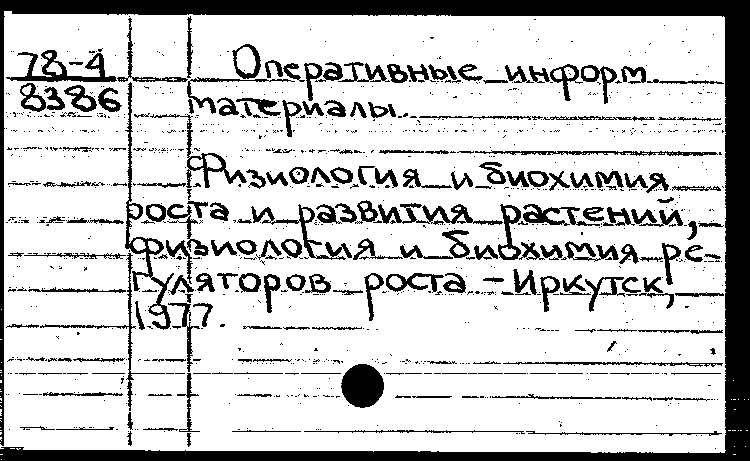 78-4 Оперативные информ.
8386 материалы.
Физиология и биохимия
роста и развития растений,
физиология и биохимия ре-
гуляторов роста - Иркутск,
1977.